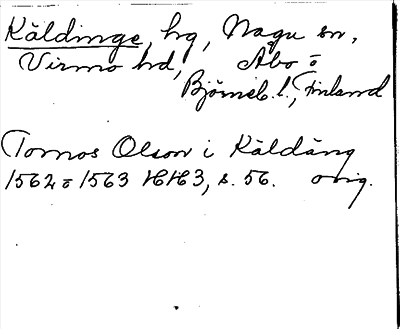 Käldinge, hg, Nagu sn,
Virmo hd, Åbo o
Björneb. l., Finland
Tomos Olson i Käldäng
1562 o 1563 HH3, s. 56. orig.